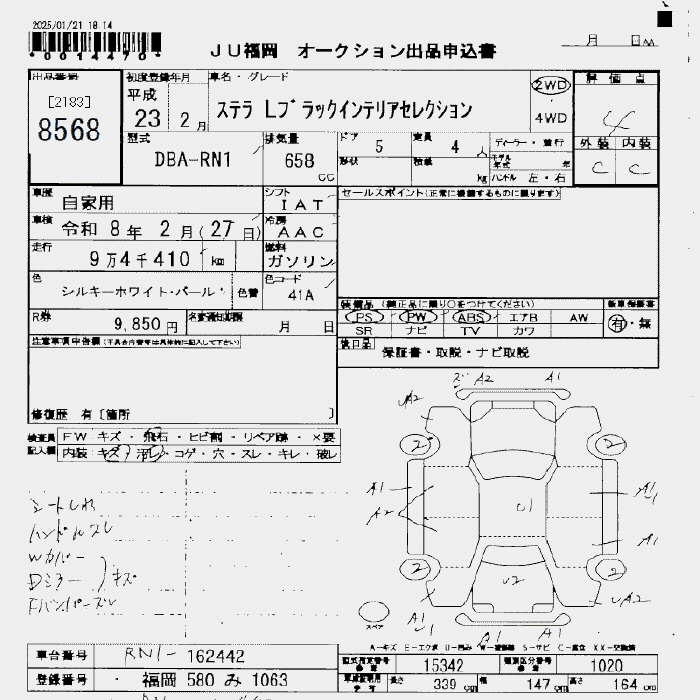 2025/01/21 18:14
*00144​70*
JU福岡 オークション出品申込書
月 日
出品番号 初度登録年月 車名・グレード 評価点
[2183] 平成 23 2月 ステラ Lブラックインテリアセレクション 2WD 4
8568 4WD 外装 内装
型式 排気量 ドア 5 定員 4 人 ディーラー・並行 C C
DBA-RN1 658 cc 形状 積載 kg モデル年式 年
ハンドル 左・右
車歴 自家用 シフト IAT セールスポイント(正常に機能するものに限ります)
車検 令和 8年 2月(27日) 冷房 AAC
走行 9万4千410 km 燃料 ガソリン
色 シルキーホワイト・パール・ 色替 色コード 41A
装備品 (純正品に限り○をつけてください) 新車保証書
R券 9,850円 名変通知期限 月 日 PS PW ABS エアB AW 有・無
SR ナビ TV カワ
注意事項申告欄 後日品 保証書・取説・ナビ取説
修復歴 有〔箇所 〕
検査員記入欄 FW キズ・飛石・ヒビ割・リペア跡・×要
内装:キズ・汚レ・コゲ・穴・スレ・キレ・破レ
A2 A1
A2
2 2
A1 A1
A2 U1
A1
2 U2 2
UA2
A1 A1
スペア W
シートしわ
ハンドルスレ
Wカバー
Dミラー キズ
Fバンパーズレ
A-キズ E-エクボ U-凹み W-波補修 S-サビ C-腐食 XX-交換済
車台番号 RN1-162442 型式指定番号 15342 類別区分番号 1020
登録番号 福岡 580 み 1063 長さ 339 cm 幅 147 cm 高さ 164 cm